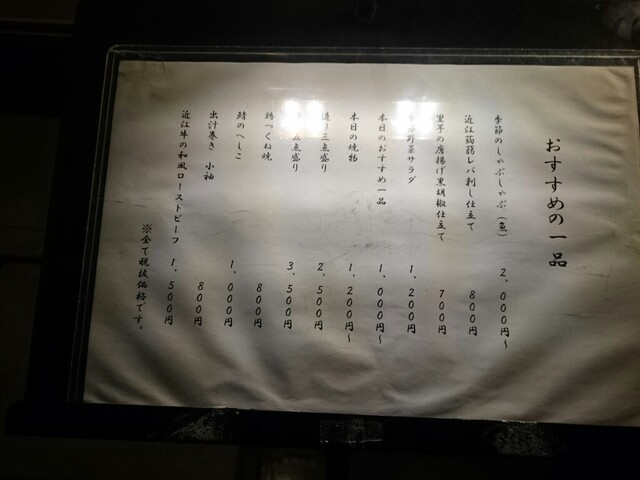 おすすめの一品
季節のしゃぶしゃぶ(魚) 2,000円~
近江蒟蒻レバ刺し仕立て 800円
里芋の唐揚げ黒胡椒仕立て 700円
野菜サラダ 1,200円
本日のおすすめ一品 1,000円~
本日の焼物 1,200円~
造り三点盛り 2,500円
五点盛り 3,500円
鶏つくね焼 800円
鯖のへしこ 1,000円
出汁巻き 小袖 800円
近江牛の和風ローストビーフ 1,500円
※全て税抜価格です。